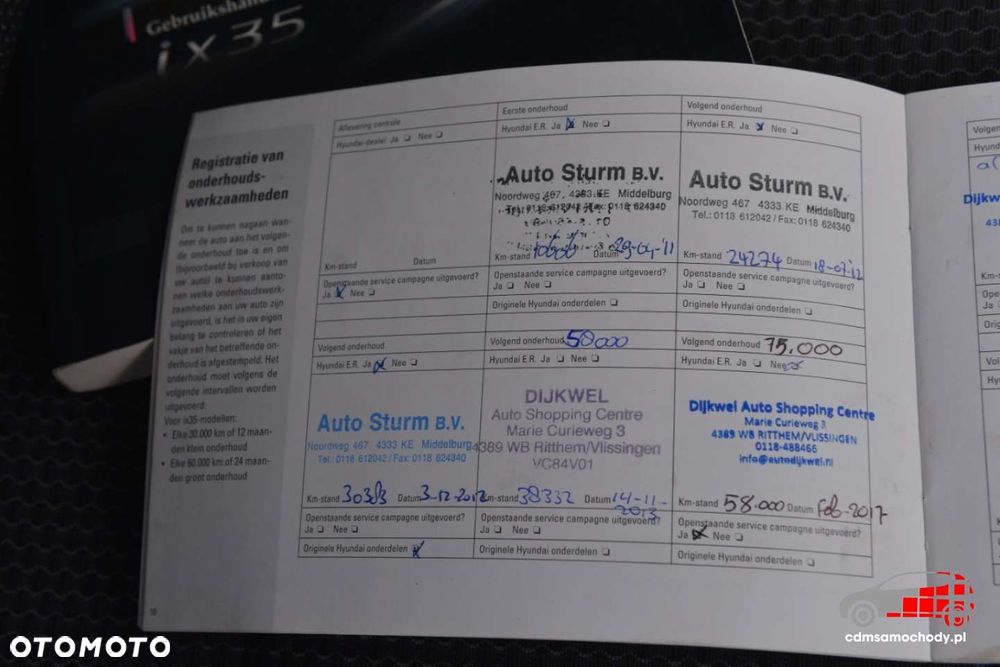 Gebruikshand
ix35
Registratie van
onderhouds-
werkzaamheden
Om te kunnen nagaan wan-
neer de auto aan het volgen-
de onderhoud toe is en om
(bijvoorbeeld bij verkoop van
uw auto) te kunnen aanto-
nen welke onderhoudswerk-
zaamheden aan uw auto zijn
uitgevoerd, is het in uw eigen
belang te controleren of het
vakje van het betreffende on-
derhoud is afgestempeld. Het
onderhoud moet volgens de
volgende intervallen worden
uitgevoerd:
Voor ix35-modellen:
• Elke 30.000 km of 12 maan-
den klein onderhoud
• Elke 60.000 km of 24 maan-
den groot onderhoud
10
Aflevering controle
Hyundai-dealer Ja Nee
Km-stand Datum
Openstaande service campagne uitgevoerd?
Ja Nee
Eerste onderhoud
Hyundai E.R. Ja Nee
Auto Sturm B.V.
Noordweg 467, 4333 KE Middelburg
Tel.: 0118 612042 / Fax: 0118 624340
Km-stand Datum 29-04-'11
Openstaande service campagne uitgevoerd?
Ja Nee
Originele Hyundai onderdelen
Volgend onderhoud
Hyundai E.R. Ja Nee
Auto Sturm B.V.
Noordweg 467 4333 KE Middelburg
Tel.: 0118 612042 / Fax: 0118 624340
Km-stand 24274 Datum 18-07-'12
Openstaande service campagne uitgevoerd?
Ja Nee
Originele Hyundai onderdelen
Volgend onderhoud
Hyundai E.R. Ja Nee
Auto Sturm B.V.
Noordweg 467 4333 KE Middelburg
Tel.: 0118 612042 / Fax: 0118 624340
Km-stand 30383 Datum 3-12-2012
Openstaande service campagne uitgevoerd?
Ja Nee
Originele Hyundai onderdelen
Volgend onderhoud 58000
Hyundai E.R. Ja Nee
DIJKWEL
Auto Shopping Centre
Marie Curieweg 3
4389 WB Ritthem/Vlissingen
VC84V01
Km-stand 38332 Datum 14-11-
2013
Openstaande service campagne uitgevoerd?
Ja Nee
Originele Hyundai onderdelen
Volgend onderhoud 75.000
Hyundai E.R. Ja Nee
Dijkwel Auto Shopping Centre
Marie Curieweg 3
4389 WB RITTHEM/VLISSINGEN
0118-488466
info@autodijkwel.nl
Km-stand 58.000 Datum Feb-2017
Openstaande service campagne uitgevoerd?
Ja Nee
Originele Hyundai onderdelen
OTOMOTO
cdmsamochody.pl